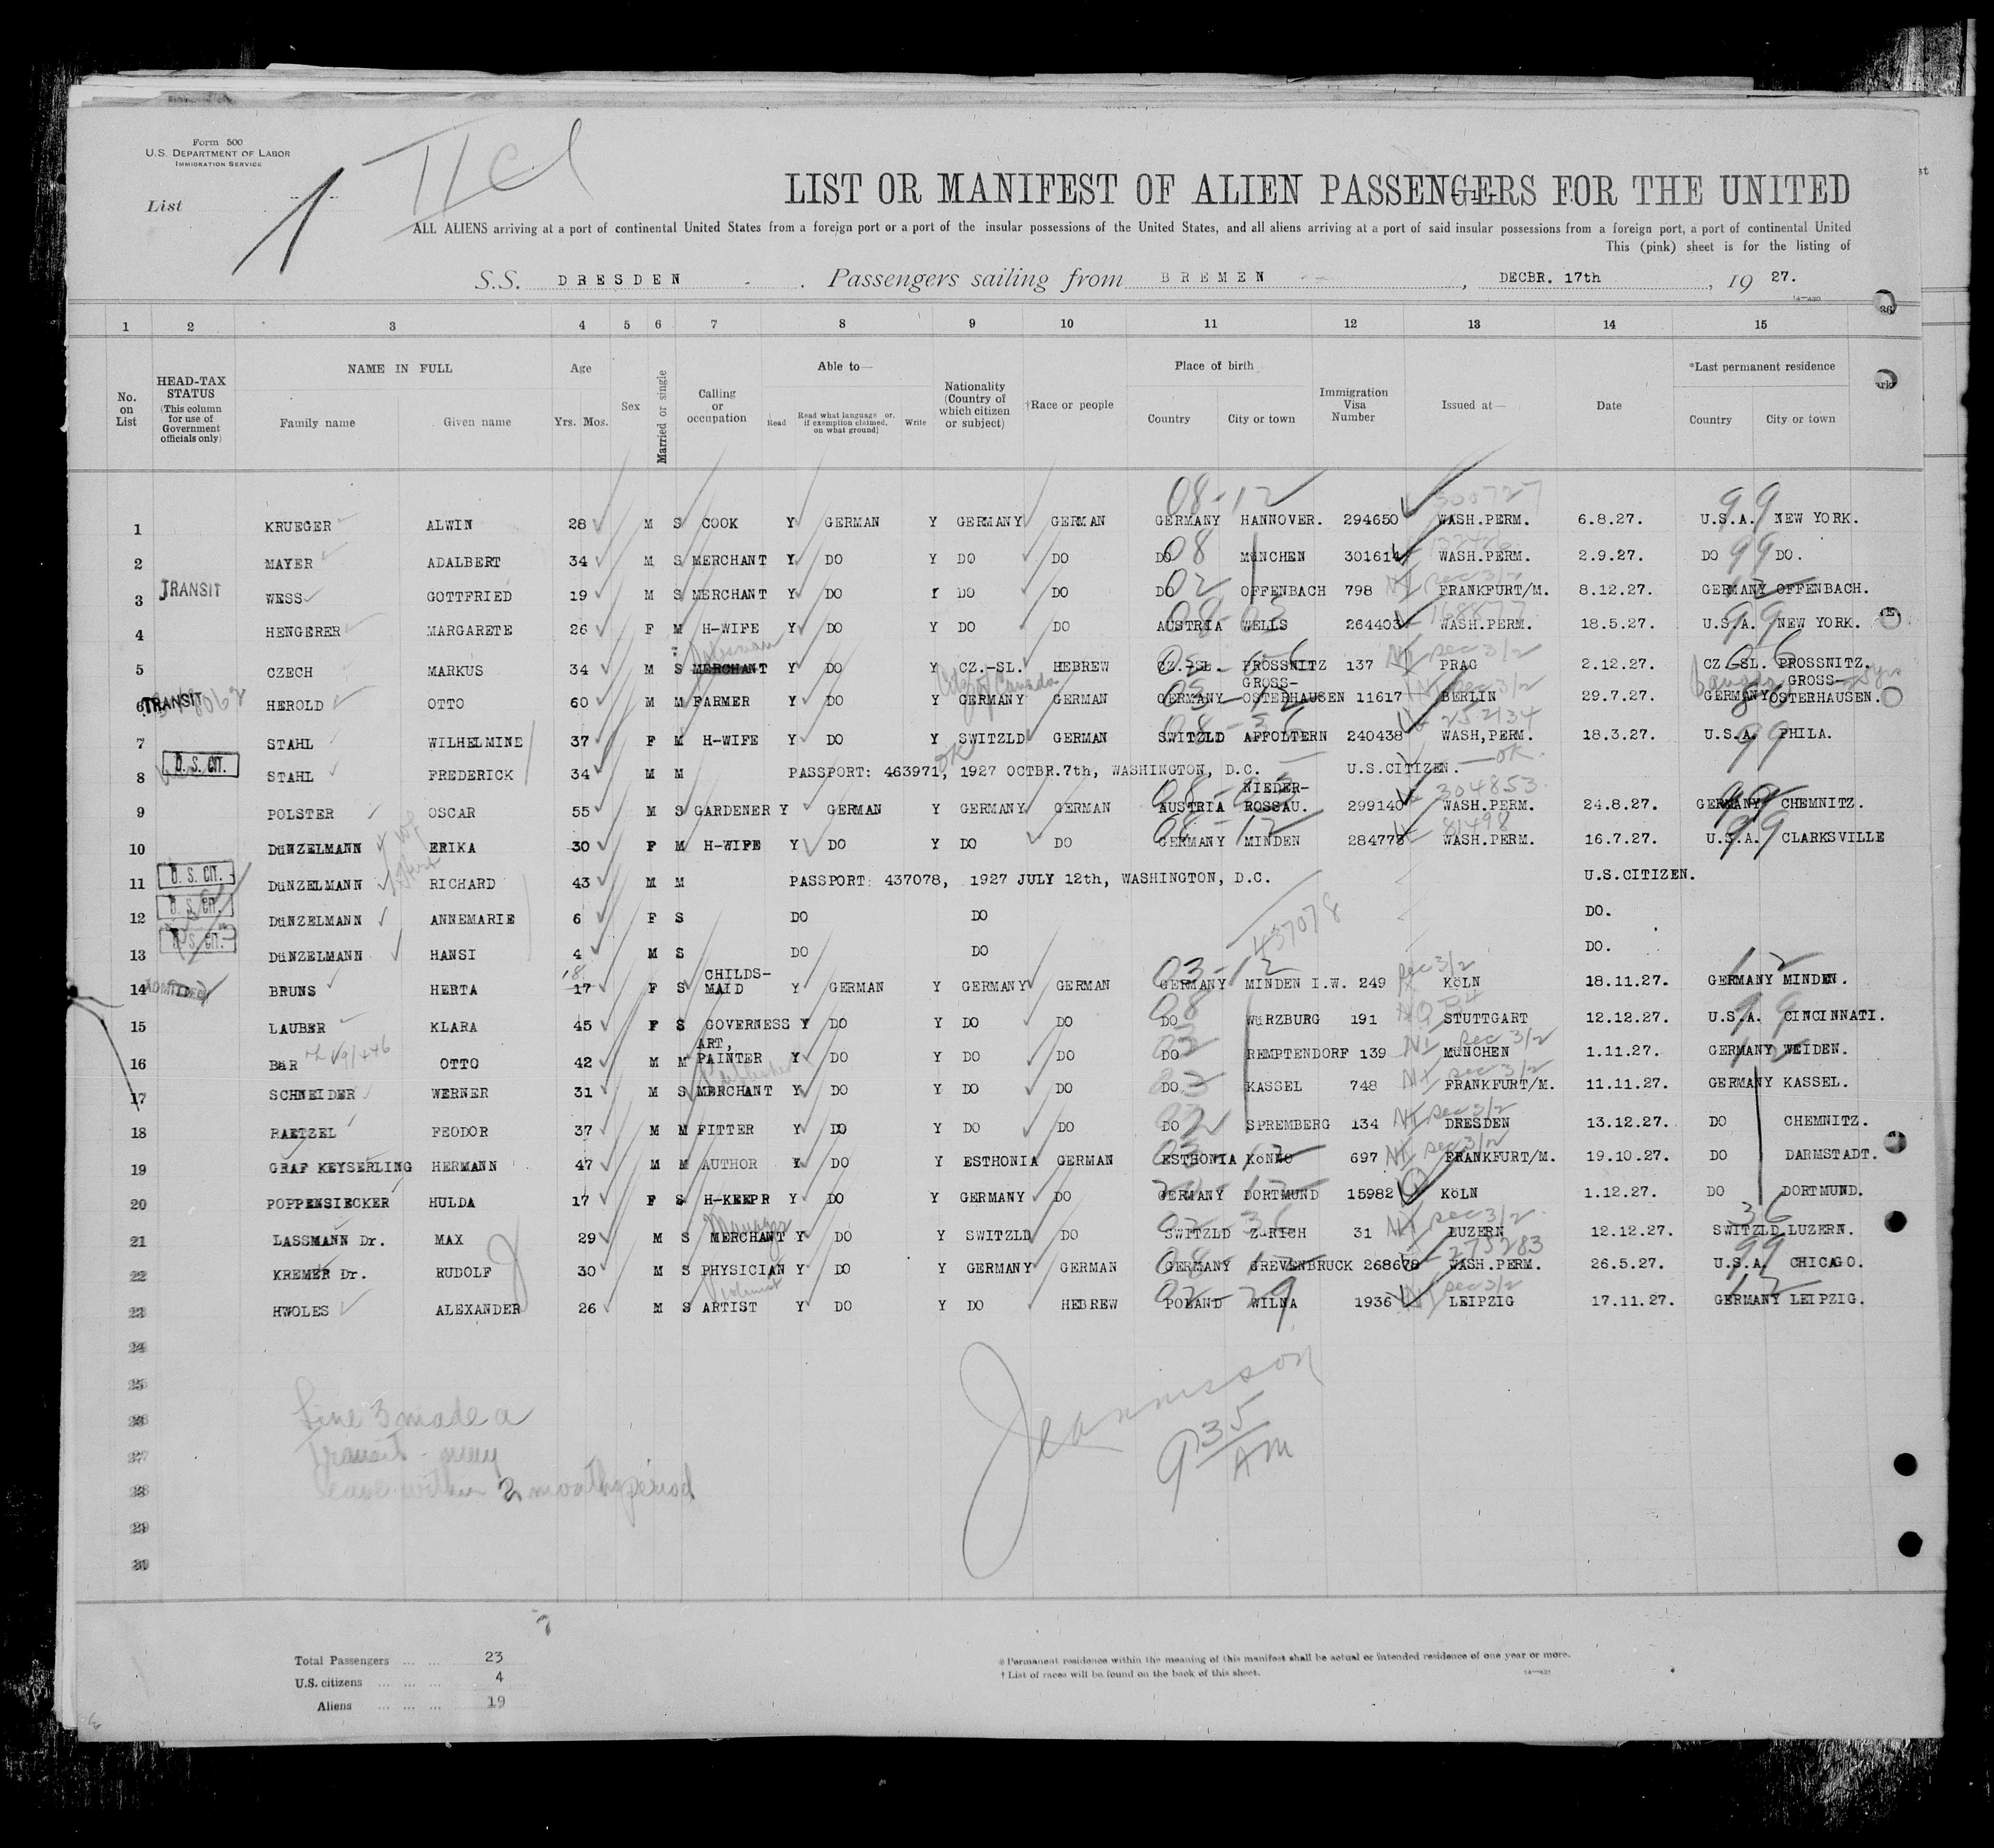 Form 500
U.S. DEPARTMENT OF LABOR
IMMIGRATION SERVICE
List 1
II Cl
LIST OR MANIFEST OF ALIEN PASSENGERS FOR THE UNITED
ALL ALIENS arriving at a port of continental United States from a foreign port or a port of the insular possessions of the United States, and all aliens arriving at a port of said insular possessions from a foreign port, a port of continental United
This (pink) sheet is for the listing of
S.S. DRESDEN . Passengers sailing from BREMEN , DECBR. 17th , 19 27.
1 2 3 4 5 6 7 8 9 10 11 12 13 14 15
No. on List
HEAD-TAX STATUS (This column for use of Government officials only)
NAME IN FULL
Family name Given name
Age
Yrs. Mos.
Sex
Married or single
Calling or occupation
Able to—
Read Read what language or, if exemption claimed, on what ground] Write
Nationality (Country of which citizen or subject)
†Race or people
Place of birth
Country City or town
Immigration Visa Number
Issued at—
Date
*Last permanent residence
Country City or town
08-12 300727 99
1 KRUEGER ALWIN 28 M S COOK Y GERMAN Y GERMANY GERMAN GERMANY HANNOVER. 294650 WASH.PERM. 6.8.27. U.S.A. NEW YORK.
2 MAYER ADALBERT 34 M S MERCHANT Y DO Y DO DO DO 08 MÜNCHEN 301614 WASH.PERM. 2.9.27. DO 99 DO.
3 TRANSIT WESS GOTTFRIED 19 M S MERCHANT Y DO Y DO DO DO 02 OFFENBACH 798 FRANKFURT/M. 8.12.27. GERMANY OFFENBACH.
4 HENGERER MARGARETE 26 F M H-WIFE Y DO Y DO DO AUSTRIA WELLS 264403 WASH.PERM. 18.5.27. U.S.A. NEW YORK.
Salesman
5 CZECH MARKUS 34 M S MERCHANT Y DO Y CZ.-SL. HEBREW CZ.-SL. PROSSNITZ 137 PRAG 2.12.27. CZ.-SL. PROSSNITZ.
6 TRANSIT HEROLD OTTO 60 M M FARMER Y DO Y GERMANY GERMAN GERMANY GROSS-OSTERHAUSEN 11617 BERLIN 29.7.27. GERMANY GROSS-OSTERHAUSEN.
7 STAHL WILHELMINE 37 F M H-WIFE Y DO Y SWITZLD GERMAN SWITZLD AFFOLTERN 240438 WASH,PERM. 18.3.27. U.S.A. PHILA.
8 U.S. CIT. STAHL FREDERICK 34 M M PASSPORT: 463971, 1927 OCTBR.7th, WASHINGTON, D.C. U.S.CITIZEN. —OK.
9 POLSTER OSCAR 55 M S GARDENER Y GERMAN Y GERMANY GERMAN AUSTRIA NIEDER-ROSSAU. 299140 304853 WASH.PERM. 24.8.27. GERMANY CHEMNITZ.
10 DüNZELMANN ERIKA 30 F M H-WIFE Y DO Y DO DO GERMANY MINDEN 284778 81498 WASH.PERM. 16.7.27. U.S.A. CLARKSVILLE
11 U.S. CIT. DüNZELMANN RICHARD 43 M M PASSPORT: 437078, 1927 JULY 12th, WASHINGTON, D.C. U.S.CITIZEN.
12 U.S. CIT. DüNZELMANN ANNEMARIE 6 F S DO DO DO.
437078
13 U.S. CIT. DüNZELMANN HANSI 4 M S DO DO DO.
14 ADMITTED BRUNS HERTA 17 18 F S CHILDS-MAID Y GERMAN Y GERMANY GERMAN GERMANY MINDEN I.W. 249 KöLN 18.11.27. GERMANY MINDEN.
15 LAUBER KLARA 45 F S GOVERNESS Y DO Y DO DO DO WüRZBURG 191 STUTTGART 12.12.27. U.S.A. CINCINNATI.
16 BäR OTTO 42 M M ART, PAINTER Y DO Y DO DO DO REMPTENDORF 139 MüNCHEN 1.11.27. GERMANY WEIDEN.
Publisher
17 SCHNEIDER WERNER 31 M S MERCHANT Y DO Y DO DO DO KASSEL 748 FRANKFURT/M. 11.11.27. GERMANY KASSEL.
18 RAETZEL FEODOR 37 M M FITTER Y DO Y DO DO DO SPREMBERG 134 DRESDEN 13.12.27. DO CHEMNITZ.
19 GRAF KEYSERLING HERMANN 47 M M AUTHOR Y DO Y ESTHONIA GERMAN ESTHONIA KöNNO 697 FRANKFURT/M. 19.10.27. DO DARMSTADT.
20 POPPENSIECKER HULDA 17 F S H-KEEPR Y DO Y GERMANY DO GERMANY DORTMUND 15982 KöLN 1.12.27. DO DORTMUND.
Manager
21 LASSMANN Dr. MAX 29 M S MERCHANT Y DO Y SWITZLD DO SWITZLD ZüRICH 31 LUZERN 12.12.27. SWITZLD LUZERN.
22 KREMER Dr. RUDOLF 30 M S PHYSICIAN Y DO Y GERMANY GERMAN GERMANY GREVENBRUCK 268678 275283 WASH.PERM. 26.5.27. U.S.A. CHICAGO.
Violinist
23 HWOLES ALEXANDER 26 M S ARTIST Y DO Y DO HEBREW POLAND WILNA 1936 LEIPZIG 17.11.27. GERMANY LEIPZIG.
24
25
26
27
28
29
30
Line 3 made a
Transit - may
leave within 2 months period
9 35 AM
Total Passengers ... ... 23
U.S. citizens ... ... ... 4
Aliens ... ... ... 19
* Permanent residence within the meaning of this manifest shall be actual or intended residence of one year or more.
† List of races will be found on the back of this sheet.